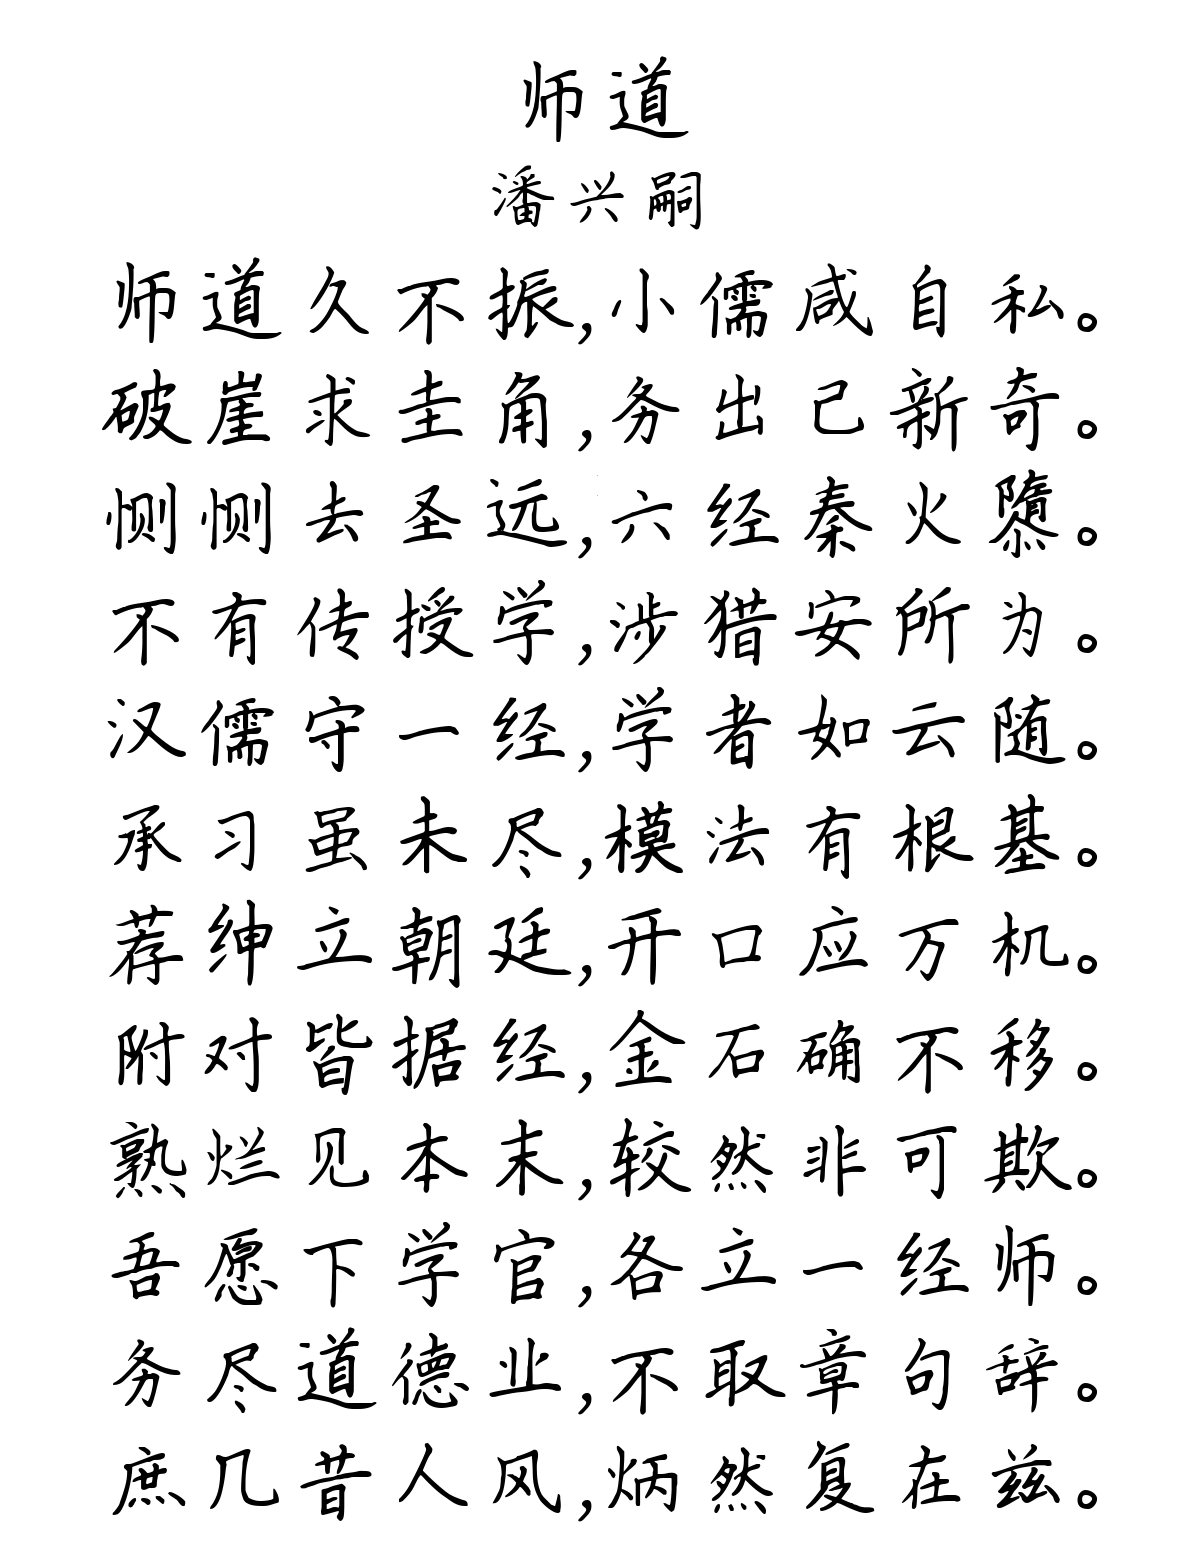 师道
潘兴嗣
师道久不振,小儒咸自私。
破崖求圭角,务出己新奇。
恻恻去圣远,六经秦火隳。
不有传授学,涉猎安所为。
汉儒守一经,学者如云随。
承习虽未尽,模法有根基。
荐绅立朝廷,开口应万机。
附对皆据经,金石确不移。
熟烂见本末,较然非可欺。
吾愿下学官,各立一经师。
务尽道德业,不取章句辞。
庶几昔人风,炳然复在兹。